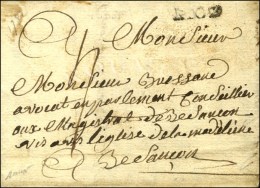 NICE
Monsieur
Monsieur Bressand
avocat en parlement Conseiller
aux Magistrat de Besancon
vis avis leglise de la madeleine
Besançon